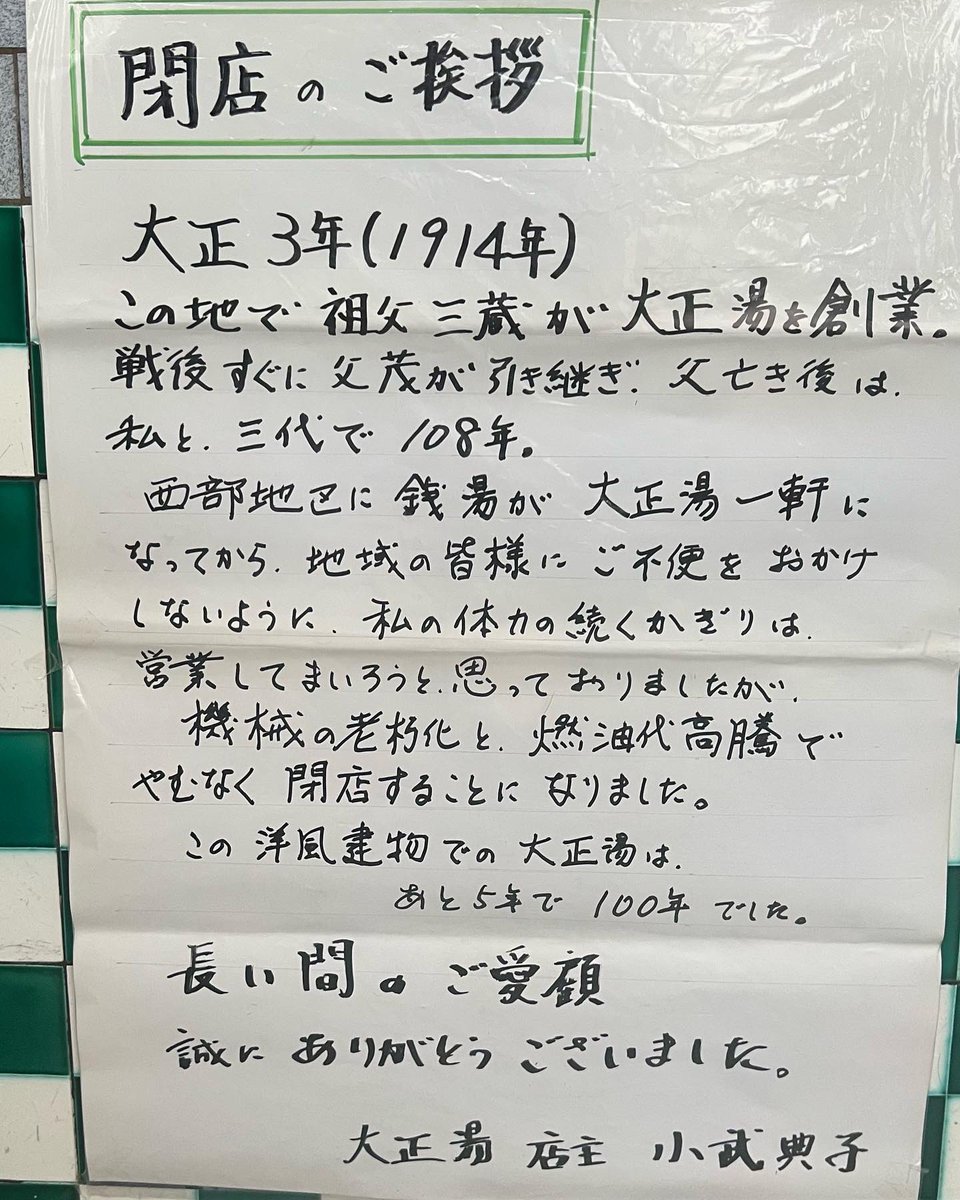 閉店のご挨拶
大正3年(1914年)
この地で祖父三蔵が大正湯を創業。
戦後すぐに父茂が引き継ぎ、父亡き後は、
私と、三代で108年。
西部地区に銭湯が大正湯一軒に
なってから、地域の皆様にご不便をおかけ
しないように、私の体力の続くかぎりは、
営業してまいろうと、思っておりましたが、
機械の老朽化と、燃油代高騰で
やむなく閉店することになりました。
この洋風建物での大正湯は、
あと5年で100年でした。
長い間のご愛顧
誠にありがとうございました。
大正湯 店主 小武典子